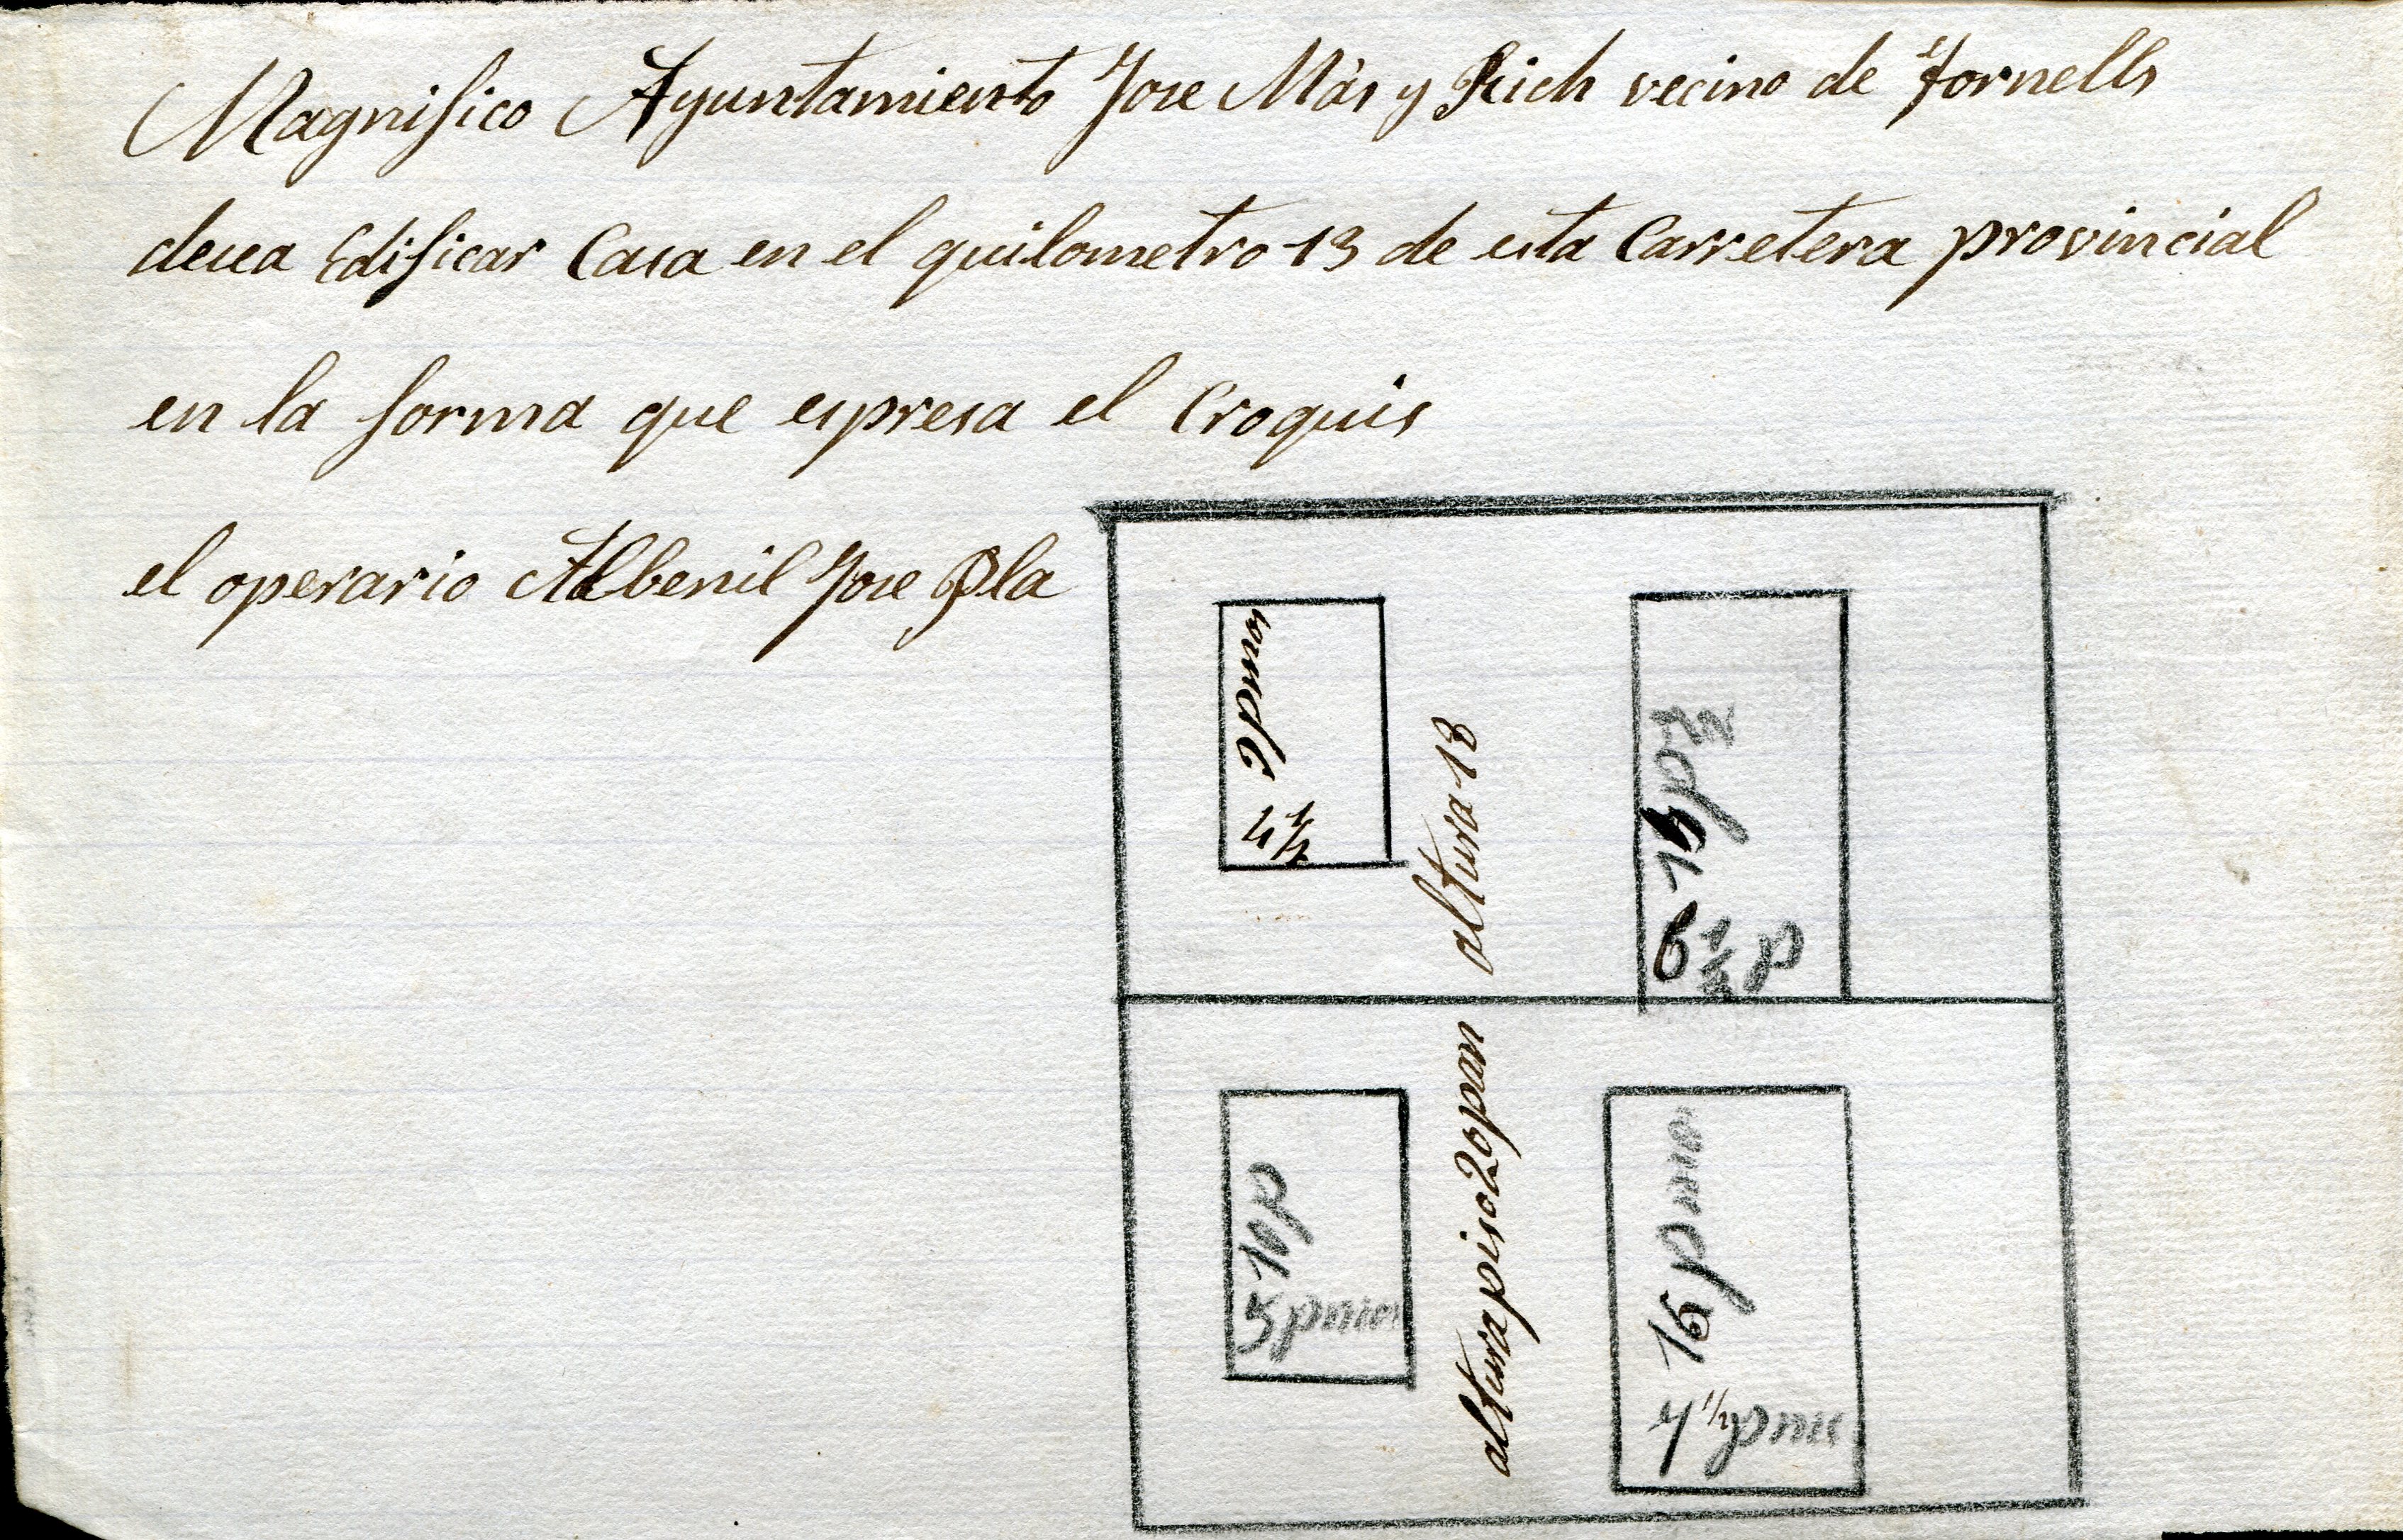 Magnifico Ayuntamiento Jose Màs y Rich vecino de Fornells
desea Edificar Casa en el quilometro 13 de esta Carretera provincial
en la forma que espresa el Croquis
el operario Albenil Jose Pla
9 pmos
4 1/2
altura 18
14 p
6 1/2 p
altura piso 20 pan
10 p
5 pmos
16 pmos
7 1/2 pmos